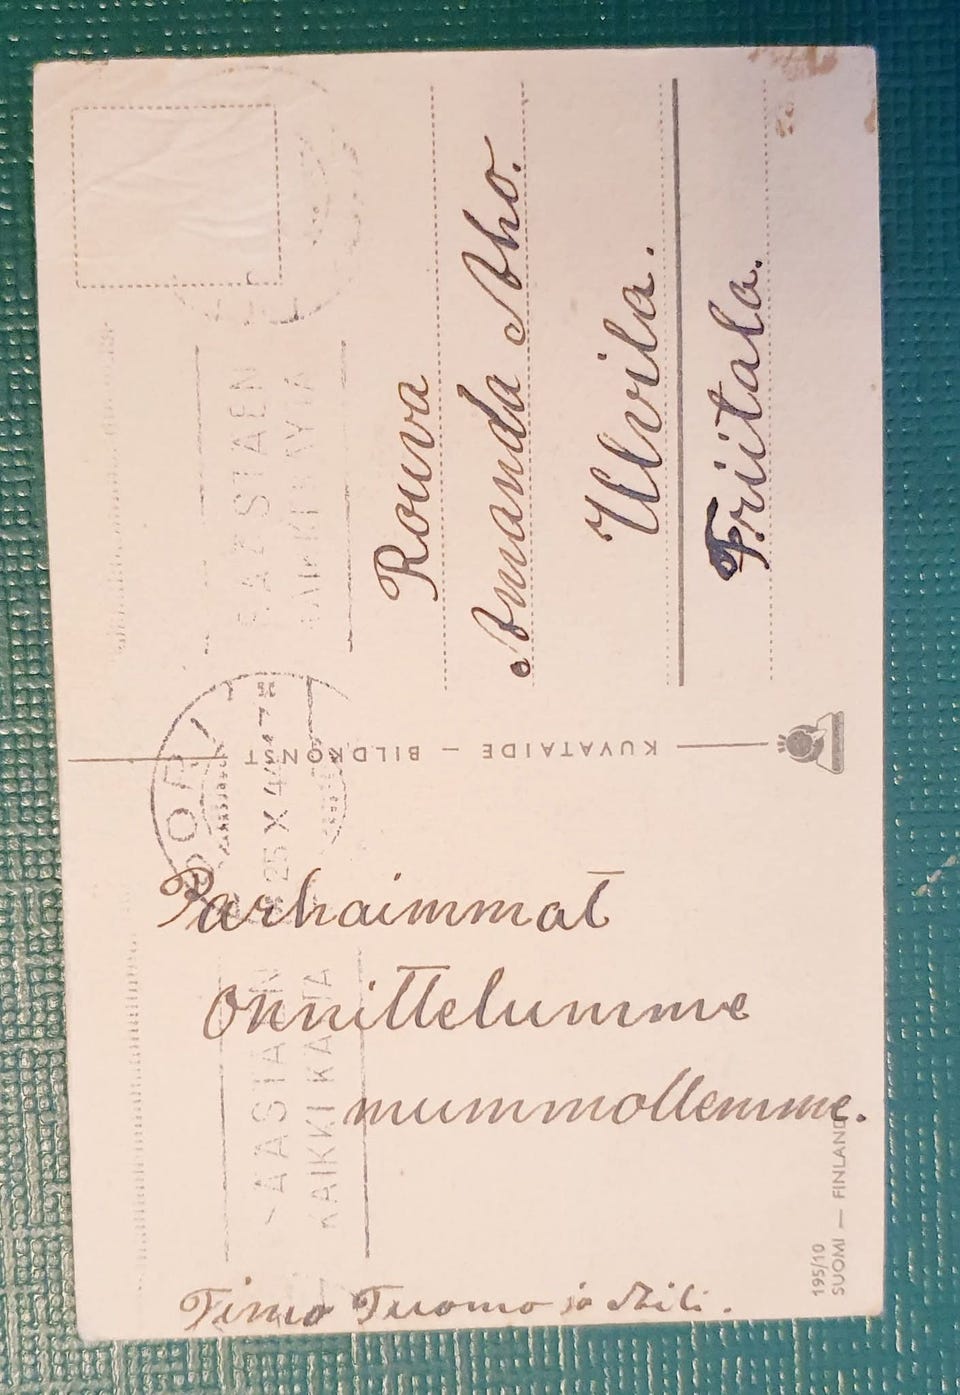 Parhaimmat
onnittelumme
mummollemme.
Timo Tuomo ja Aiti.
Rouva
Amanda Aho.
Ulvila.
Friitala.
KUVATAIDE — BILDKONST
PORI
25 X 4
KAIKKI
195/10
SUOMI — FINLAND